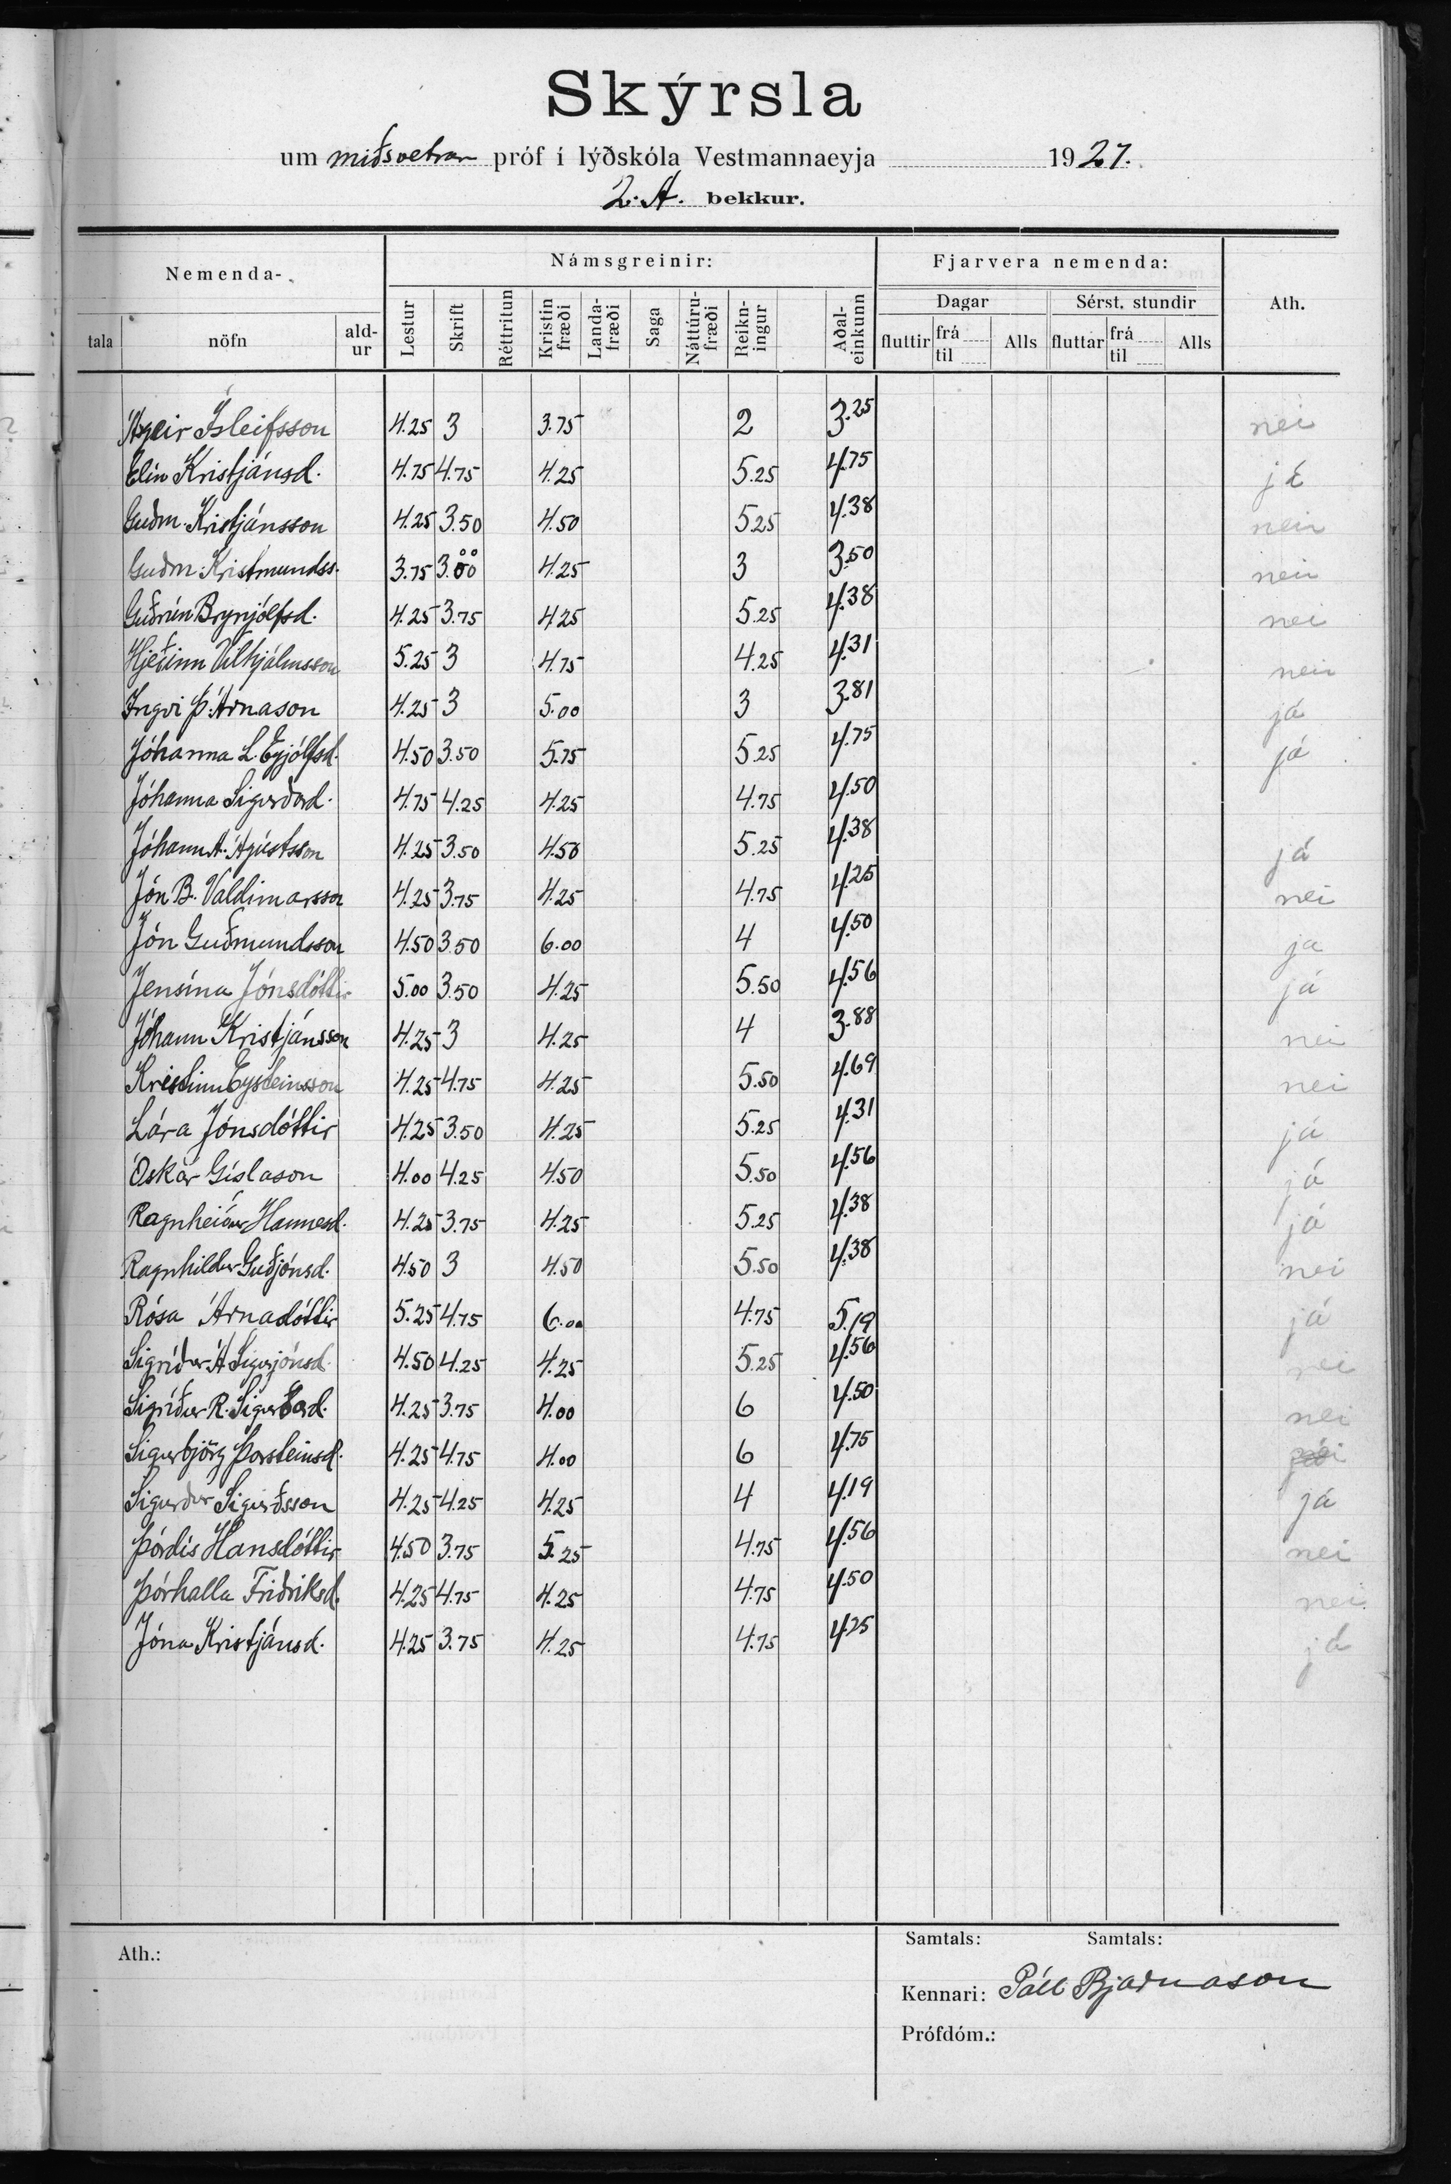 Skýrsla
um miðsvetrar próf í lýðskóla Vestmannaeyja 1927.
2. A. bekkur.
Nemenda- Námsgreinir: Fjarvera nemenda: Ath.
Dagar Sérst. stundir
tala nöfn ald-ur Lestur Skrift Réttritun Kristin fræði Landa-fræði Saga Náttúru-fræði Reikn-ingur Aðal-einkunn fluttir frá til Alls fluttar frá til Alls
Ásgeir Ísleifsson 4.25 3 3.75 2 3.25 nei
Elín Kristjánsd. 4.75 4.75 4.25 5.25 4.75 já
Guðm. Kristjánsson 4.25 3.50 4.50 5.25 4.38 nei
Guðm. Kristmundss. 3.75 3.00 4.25 3 3.50 nei
Guðrún Brynjólfsd. 4.25 3.75 4.25 5.25 4.38 nei
Hjeðinn Vilhjálmsson 5.25 3 4.75 4.25 4.31 nei
Ingvi Þ. Árnason 4.25 3 5.00 3 3.81 já
Jóhanna L. Eyjólfsd. 4.50 3.50 5.75 5.25 4.75 já
Jóhanna Sigurðard. 4.75 4.25 4.25 4.75 4.50
Jóhann A. Ágústsson 4.25 3.50 4.50 5.25 4.38 já
Jón B. Valdimarsson 4.25 3.75 4.25 4.75 4.25 nei
Jón Guðmundsson 4.50 3.50 6.00 4 4.50 ja
Jensína Jónsdóttir 5.00 3.50 4.25 5.50 4.56 já
Jóhann Kristjánsson 4.25 3 4.25 4 3.88 nei
Kristinn Eysteinsson 4.25 4.75 4.25 5.50 4.69 nei
Lára Jónsdóttir 4.25 3.50 4.25 5.25 4.31 já
Óskar Gíslason 4.00 4.25 4.50 5.50 4.56 já
Ragnheiður Hannesd. 4.25 3.75 4.25 5.25 4.38 já
Ragnhildur Guðjónsd. 4.50 3 4.50 5.50 4.38 nei
Rósa Árnadóttir 5.25 4.75 6.00 4.75 5.19 já
Sigríður Á Sigurjónsd. 4.50 4.25 4.25 5.25 4.56 nei
Sigríður R. Sigurðard. 4.25 3.75 4.00 6 4.50 nei
Sigurbjörg Þorsteinsd. 4.25 4.75 4.00 6 4.75
Sigurður Sigurðsson 4.25 4.25 4.25 4 4.19 já
Þórdís Hansdóttir 4.50 3.75 5.25 4.75 4.56 nei
Þórhalla Friðriksd. 4.25 4.75 4.25 4.75 4.50 nei
Jóna Kristjánsd. 4.25 3.75 4.25 4.75 4.25 já
Ath.: Samtals: Samtals:
Kennari: Páll Bjarnason
Prófdóm.: